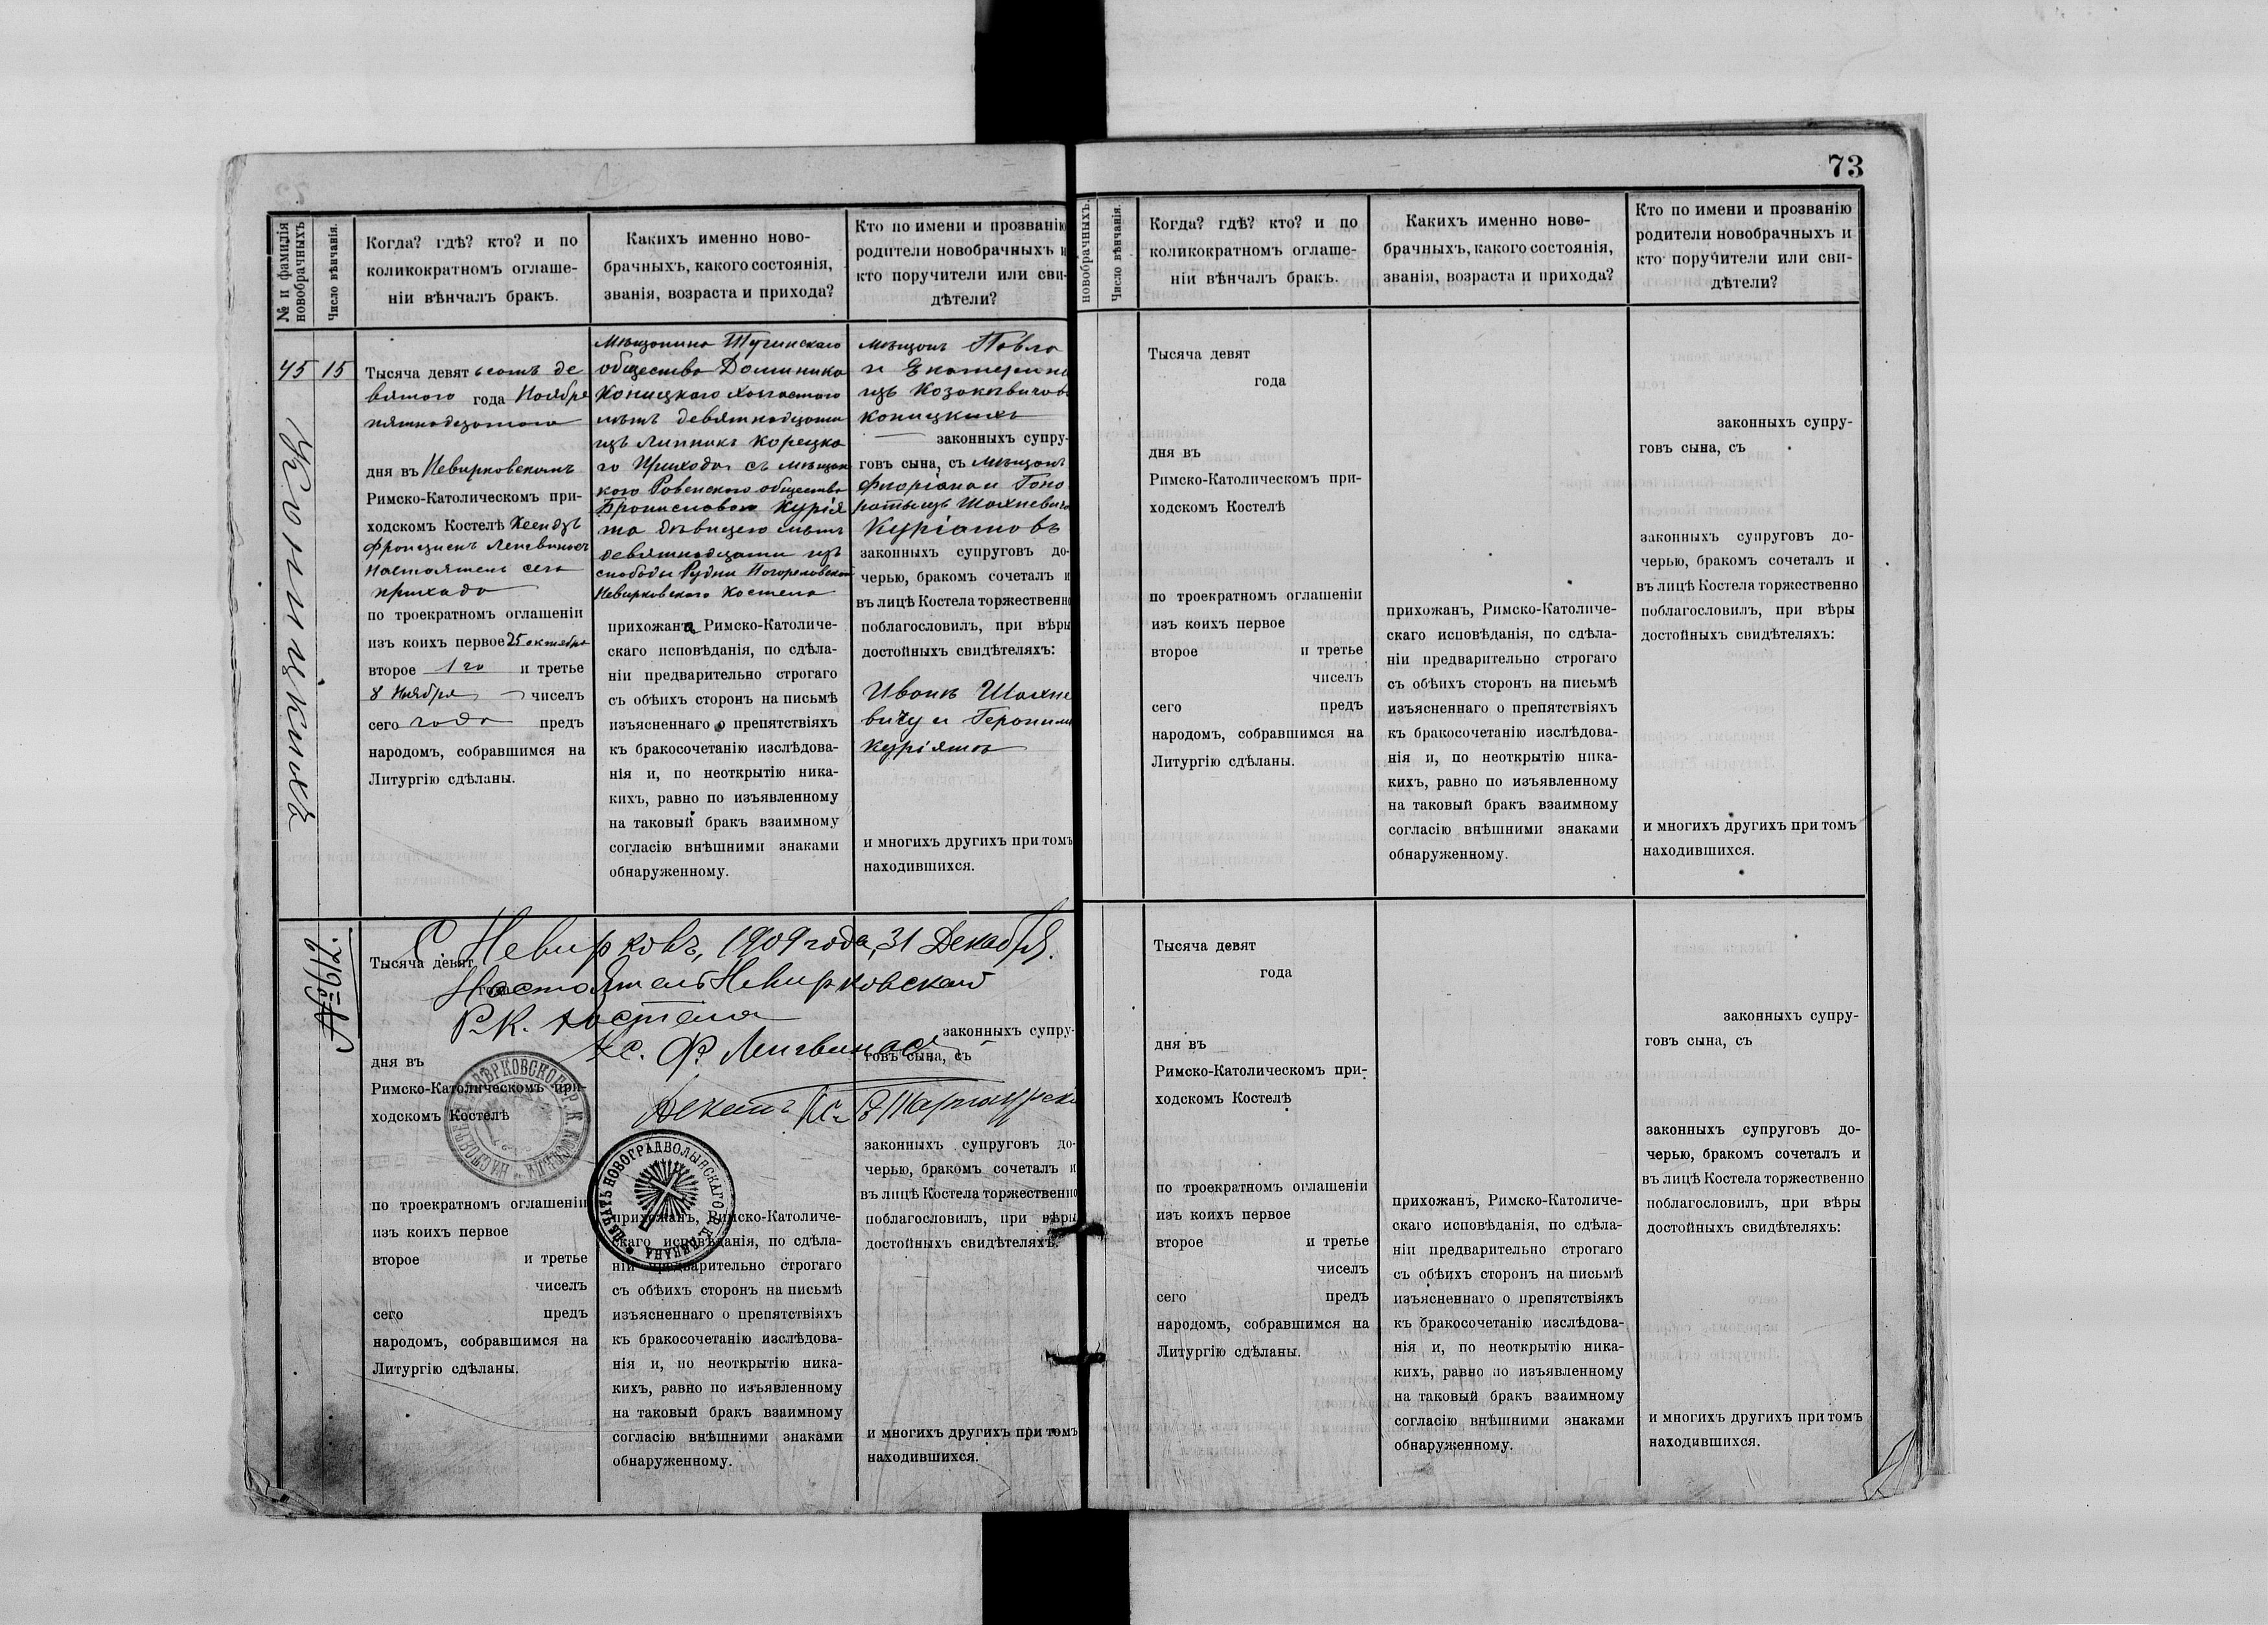 73
№ и фамилія
новобрачныхъ
Число вѣнчанія.
Когда? гдѣ? кто? и по
коликократномъ оглаше-
ніи вѣнчалъ бракъ.
Какихъ именно ново-
брачныхъ, какого состоянія,
званія, возраста и прихода?
Кто по имени и прозванію
родители новобрачныхъ и
кто поручители или сви-
дѣтели?
45
15
Коницкихъ
Тысяча девятьсотъ де
вятого года Ноября
пятнадцатого
дня въ Невирковскомъ
Римско-Католическомъ при-
ходскомъ Костелѣ Ксендзъ
Францискъ
Настоятель сего
прихода
по троекратномъ оглашеніи
изъ коихъ первое 25 октября
второе 1 го и третье
8 Ноября чиселъ
сего года предъ
народомъ, собравшимся на
Литургію сдѣланы.
Мѣщанина Тучинскаго
общества Доминика
Коницкаго холостого
лѣтъ девятнадцати
изъ Липникъ Корецка
го прихода съ мѣщан
кою Ровенского общества
Брониславою Курія
та дѣвицею лѣтъ
девятнадцати изъ
слободы Рудни Погореловской
Невирковского Костела
прихожана Римско-Католиче-
скаго исповѣданія, по сдѣла-
ніи предварительно строгаго
съ обѣихъ сторонъ на письмѣ
изъясненнаго о препятствіяхъ
къ бракосочетанію изслѣдова-
нія и, по неоткрытію ника-
кихъ, равно по изъявленному
на таковый бракъ взаимному
согласію внѣшними знаками
обнаруженному.
мѣщанъ Павла
и Екатерины
изъ Козакевичовъ
Коницкихъ
законныхъ супру-
говъ сына, съ мѣщанъ
Флоріана и Гоно
раты изъ Шахневичъ
Куріатовъ
законныхъ супруговъ до-
черью, бракомъ сочеталъ и
въ лицѣ Костела торжественно
поблагословилъ, при вѣры
достойныхъ свидѣтеляхъ:
Иванѣ Шахне
вичу и Геронимѣ
Куріята
и многихъ другихъ при томъ
находившихся.
№ 912.
С. Невирковъ, 1909 года, 31 Декабря.
Настоятель Невирковскаго
Р.К. Костела
Кс. Ф.
Деканъ Кс.
Тысяча девят
года
дня въ
Римско-Католическомъ при-
ходскомъ Костелѣ
по троекратномъ оглашеніи
изъ коихъ первое
второе и третье
чиселъ
сего предъ
народомъ, собравшимся на
Литургію сдѣланы.
ПЕЧАТЬ НОВОГРАДВОЛЫНСКАГО Р. К. ДЕКАНА
прихожанъ, Римско-Католиче-
скаго исповѣданія, по сдѣла-
ніи предварительно строгаго
съ обѣихъ сторонъ на письмѣ
изъясненнаго о препятствіяхъ
къ бракосочетанію изслѣдова-
нія и, по неоткрытію ника-
кихъ, равно по изъявленному
на таковый бракъ взаимному
согласію внѣшними знаками
обнаруженному.
законныхъ супру-
говъ сына, съ
законныхъ супруговъ до-
черью, бракомъ сочеталъ и
въ лицѣ Костела торжественно
поблагословилъ, при вѣры
достойныхъ свидѣтеляхъ:
и многихъ другихъ при томъ
находившихся.
новобрачныхъ.
Число вѣнчанія.
Когда? гдѣ? кто? и по
коликократномъ оглаше-
ніи вѣнчалъ бракъ.
Какихъ именно ново-
брачныхъ, какого состоянія,
званія, возраста и прихода?
Кто по имени и прозванію
родители новобрачныхъ и
кто поручители или сви-
дѣтели?
Тысяча девят
года
дня въ
Римско-Католическомъ при-
ходскомъ Костелѣ
по троекратномъ оглашеніи
изъ коихъ первое
второе и третье
чиселъ
сего предъ
народомъ, собравшимся на
Литургію сдѣланы.
прихожанъ, Римско-Католиче-
скаго исповѣданія, по сдѣла-
ніи предварительно строгаго
съ обѣихъ сторонъ на письмѣ
изъясненнаго о препятствіяхъ
къ бракосочетанію изслѣдова-
нія и, по неоткрытію ника-
кихъ, равно по изъявленному
на таковый бракъ взаимному
согласію внѣшними знаками
обнаруженному.
законныхъ супру-
говъ сына, съ
законныхъ супруговъ до-
черью, бракомъ сочеталъ и
въ лицѣ Костела торжественно
поблагословилъ, при вѣры
достойныхъ свидѣтеляхъ:
и многихъ другихъ при томъ
находившихся.
Тысяча девят
года
дня въ
Римско-Католическомъ при-
ходскомъ Костелѣ
по троекратномъ оглашеніи
изъ коихъ первое
второе и третье
чиселъ
сего предъ
народомъ, собравшимся на
Литургію сдѣланы.
прихожанъ, Римско-Католиче-
скаго исповѣданія, по сдѣла-
ніи предварительно строгаго
съ обѣихъ сторонъ на письмѣ
изъясненнаго о препятствіяхъ
къ бракосочетанію изслѣдова-
нія и, по неоткрытію ника-
кихъ, равно по изъявленному
на таковый бракъ взаимному
согласію внѣшними знаками
обнаруженному.
законныхъ супру-
говъ сына, съ
законныхъ супруговъ до-
черью, бракомъ сочеталъ и
въ лицѣ Костела торжественно
поблагословилъ, при вѣры
достойныхъ свидѣтеляхъ:
и многихъ другихъ при томъ
находившихся.